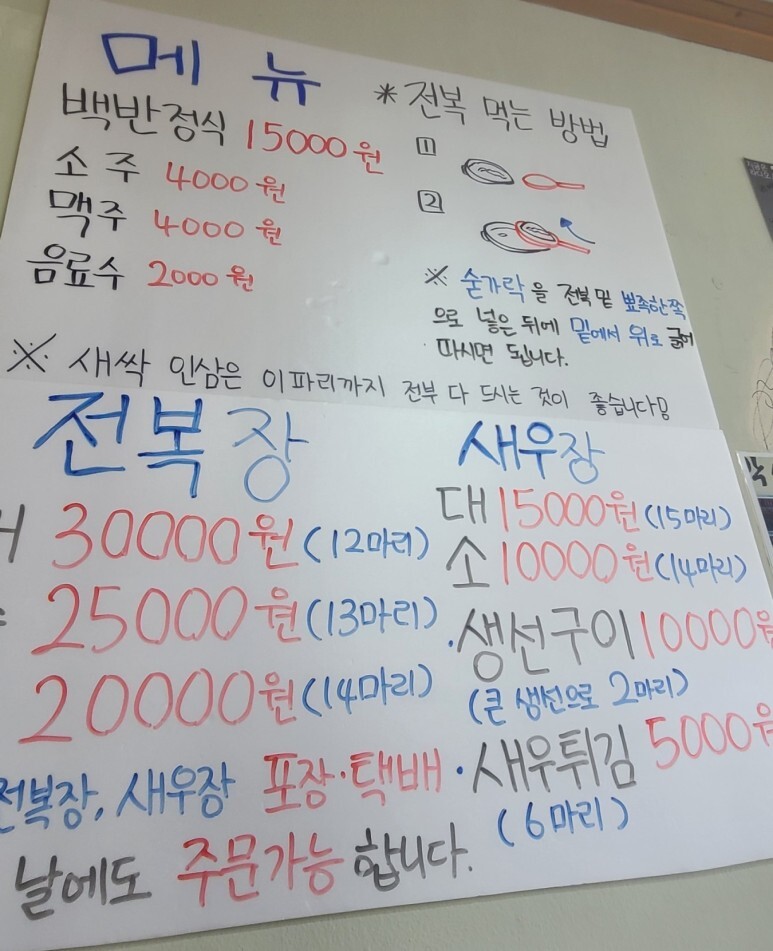 메뉴
백반정식 15000원
소주 4000원
맥주 4000원
음료수 2000원
* 전복 먹는 방법
1
2
※ 숟가락을 전복 밑 뾰족한쪽
으로 넣은 뒤에 밑에서 위로 긁어
파시면 됩니다.
※ 새싹 인삼은 이파리까지 전부 다 드시는 것이 좋습니다
전복장
30000원 (12마리)
25000원 (13마리)
20000원 (14마리)
새우장
대 15000원 (15마리)
소 10000원 (14마리)
·생선구이 10000원
(큰 생선으로 2마리)
·새우튀김 5000원
(6마리)
전복장, 새우장 포장·택배
날에도 주문가능 합니다.